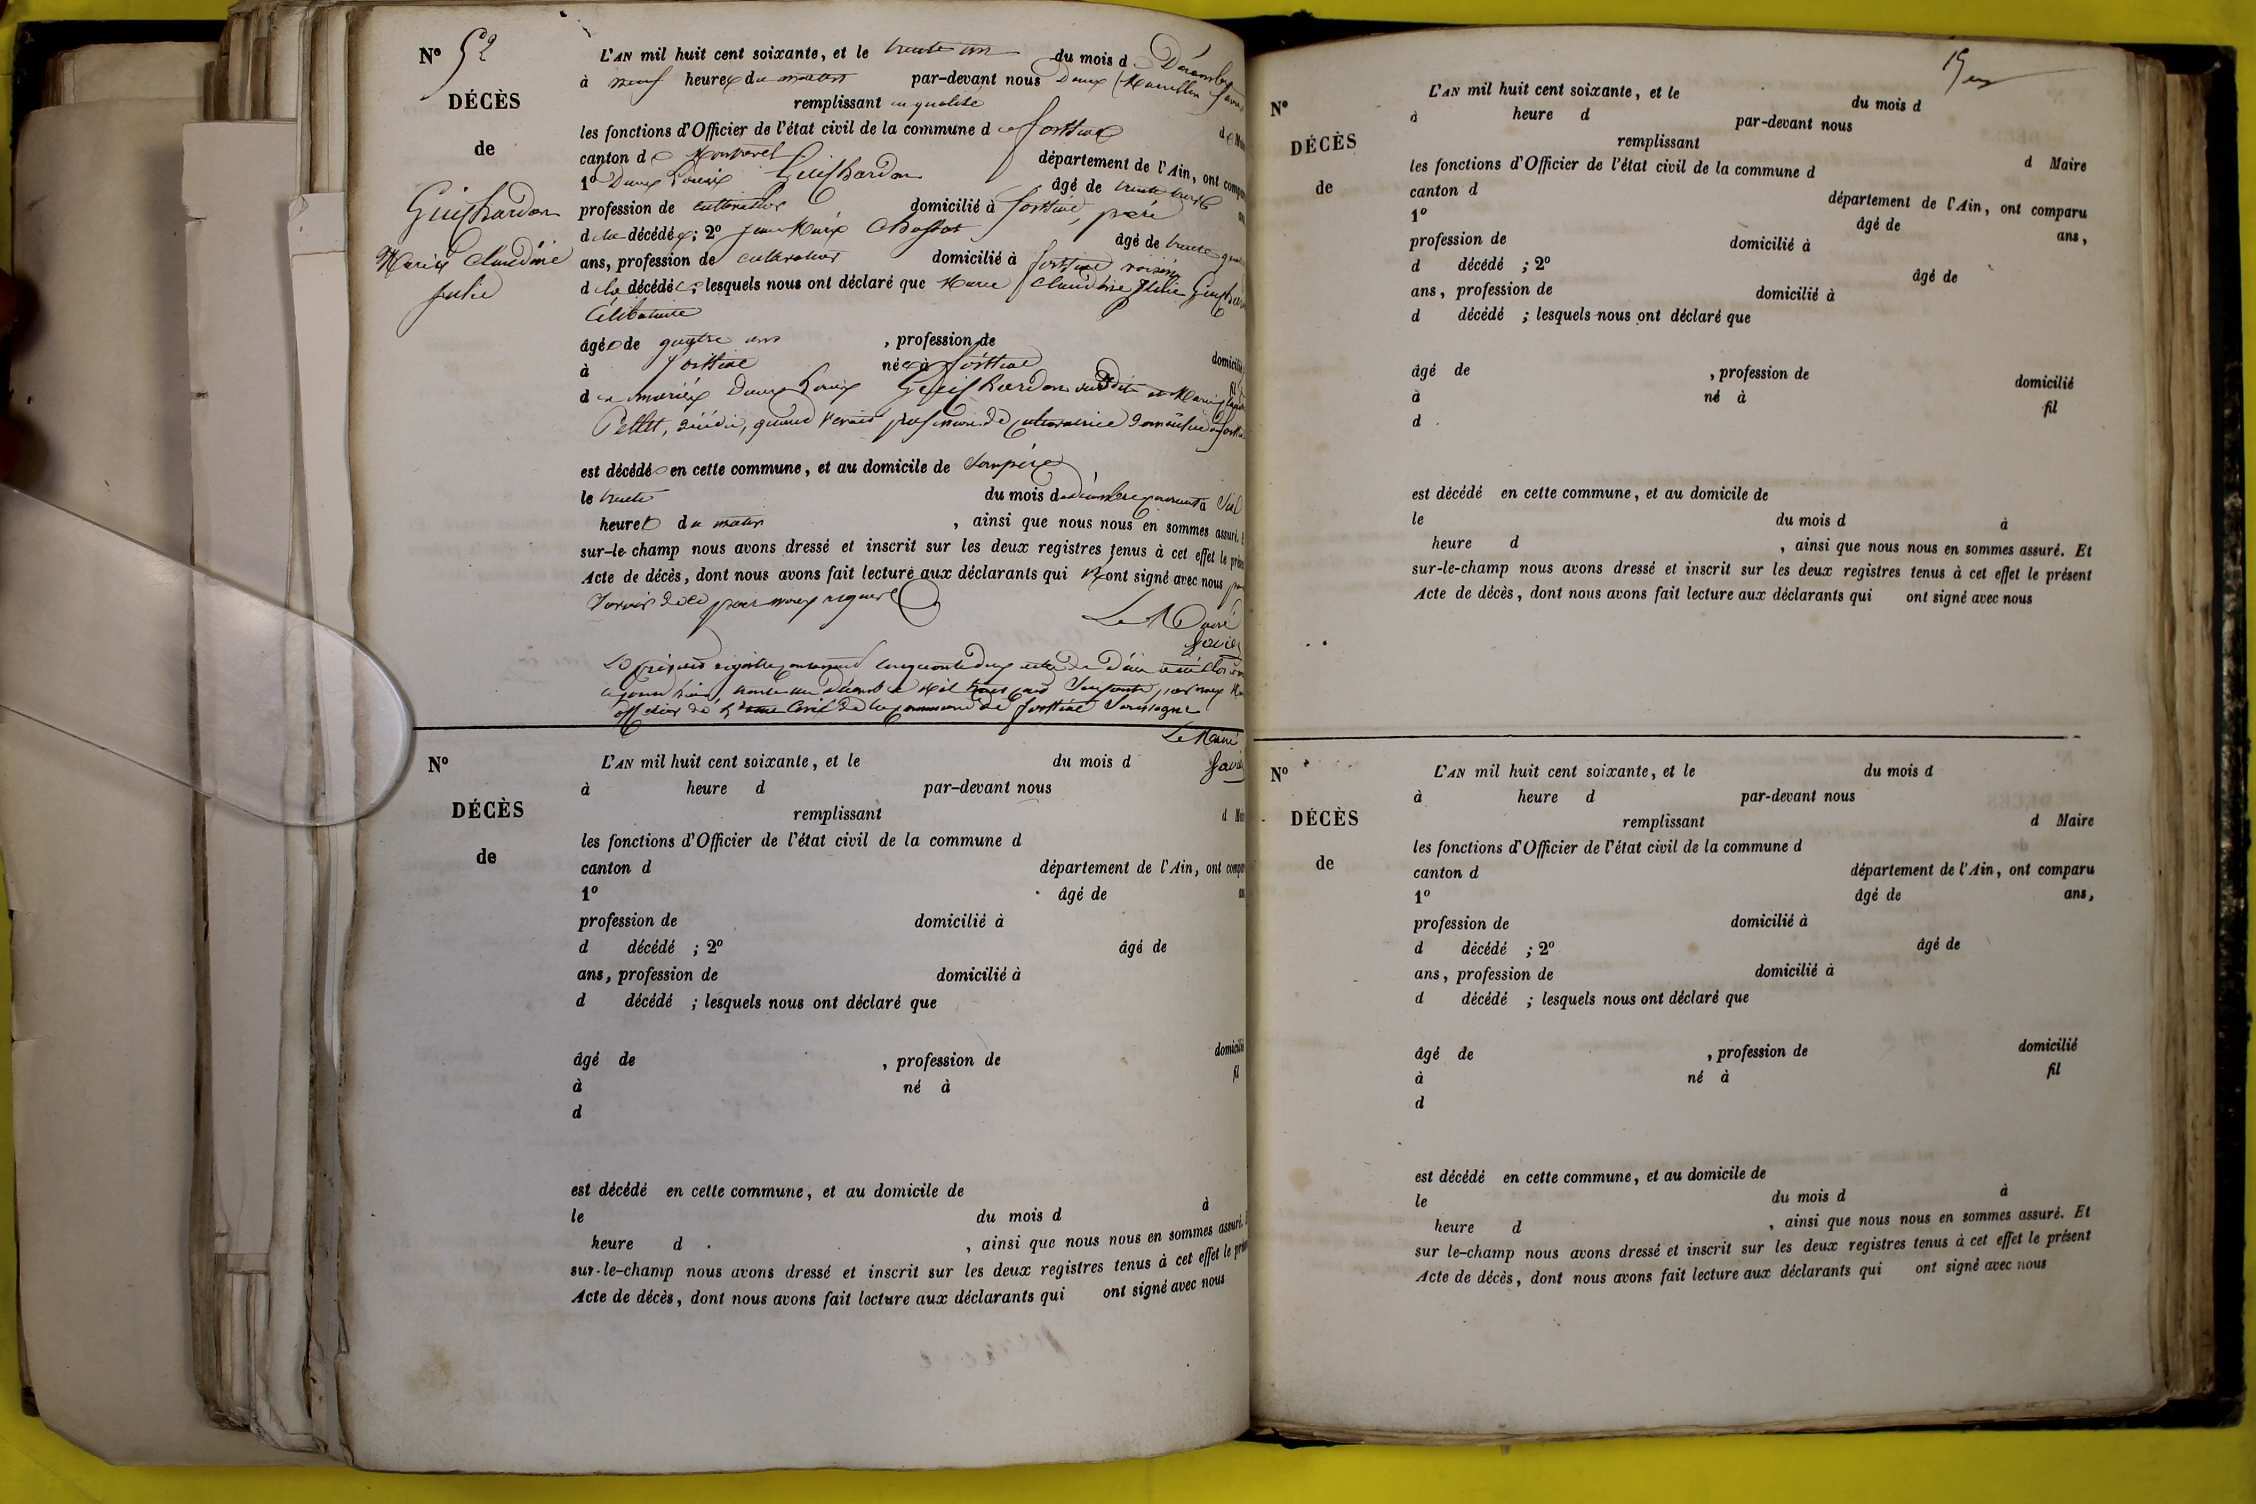 N° 52
DÉCÈS
de
Guichardon
Marie Claudine
Julie
L'AN mil huit cent soixante, et le trente un du mois de Décembre
à neuf heures du matin par-devant nous
remplissant en qualité
les fonctions d'Officier de l'état civil de la commune de foissiat de
canton de Montrevel département de l'Ain, ont
1° Denis Louis Guichardon âgé de trente trois
profession de cultivateur domicilié à foissiat, père
de la décédée; 2° Jean Marie âgé de trente
ans, profession de cultivateur domicilié à foissiat voisin
de la décédée; lesquels nous ont déclaré que Marie Claudine Julie
Célibataire
âgée de quatre ans, profession de domicilié
à foissiat née à foissiat
de mariés Denis Louis Guichardon susdit et Marie
Pellet, profession de cultivatrice domiciliée
est décédée en cette commune, et au domicile de son père
le trente du mois de décembre courant à
heures du matin, ainsi que nous nous en sommes assuré.
sur-le-champ nous avons dressé et inscrit sur les deux registres tenus à cet effet le
Acte de décès, dont nous avons fait lecture aux déclarants qui n'ont signé avec nous pour
savoir de ce par nous requis
Le Maire
Le présent registre contenant cinquante deux actes de Décès a été clos
trente un décembre mil huit cent soixante, par nous
officier de l'état Civil de la commune de foissiat soussigné
Le Maire
N°
DÉCÈS
de
L'AN mil huit cent soixante, et le du mois d
à heure d par-devant nous
remplissant d
les fonctions d'Officier de l'état civil de la commune d
canton d département de l'Ain, ont
1° âgé de
profession de domicilié à
d décédé ; 2° âgé de
ans, profession de domicilié à
d décédé ; lesquels nous ont déclaré que
âgé de , profession de domicilié
à né à fil
d
est décédé en cette commune, et au domicile de
le du mois d à
heure d , ainsi que nous nous en sommes assuré.
sur-le-champ nous avons dressé et inscrit sur les deux registres tenus à cet effet le
Acte de décès, dont nous avons fait lecture aux déclarants qui ont signé avec nous
N°
DÉCÈS
de
L'AN mil huit cent soixante, et le du mois d
à heure d par-devant nous
remplissant d Maire
les fonctions d'Officier de l'état civil de la commune d
canton d département de l'Ain, ont comparu
1° âgé de ans,
profession de domicilié à
d décédé ; 2° âgé de
ans, profession de domicilié à
d décédé ; lesquels nous ont déclaré que
âgé de , profession de domicilié
à né à fil
d
est décédé en cette commune, et au domicile de
le du mois d à
heure d , ainsi que nous nous en sommes assuré. Et
sur-le-champ nous avons dressé et inscrit sur les deux registres tenus à cet effet le présent
Acte de décès, dont nous avons fait lecture aux déclarants qui ont signé avec nous
N°
DÉCÈS
de
L'AN mil huit cent soixante, et le du mois d
à heure d par-devant nous
remplissant d Maire
les fonctions d'Officier de l'état civil de la commune d
canton d département de l'Ain, ont comparu
1° âgé de ans,
profession de domicilié à
d décédé ; 2° âgé de
ans, profession de domicilié à
d décédé ; lesquels nous ont déclaré que
âgé de , profession de domicilié
à né à fil
d
est décédé en cette commune, et au domicile de
le du mois d à
heure d , ainsi que nous nous en sommes assuré. Et
sur le-champ nous avons dressé et inscrit sur les deux registres tenus à cet effet le présent
Acte de décès, dont nous avons fait lecture aux déclarants qui ont signé avec nous